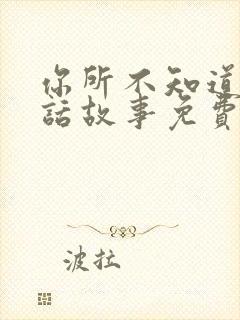 你所不知道
話故事免費
波拉